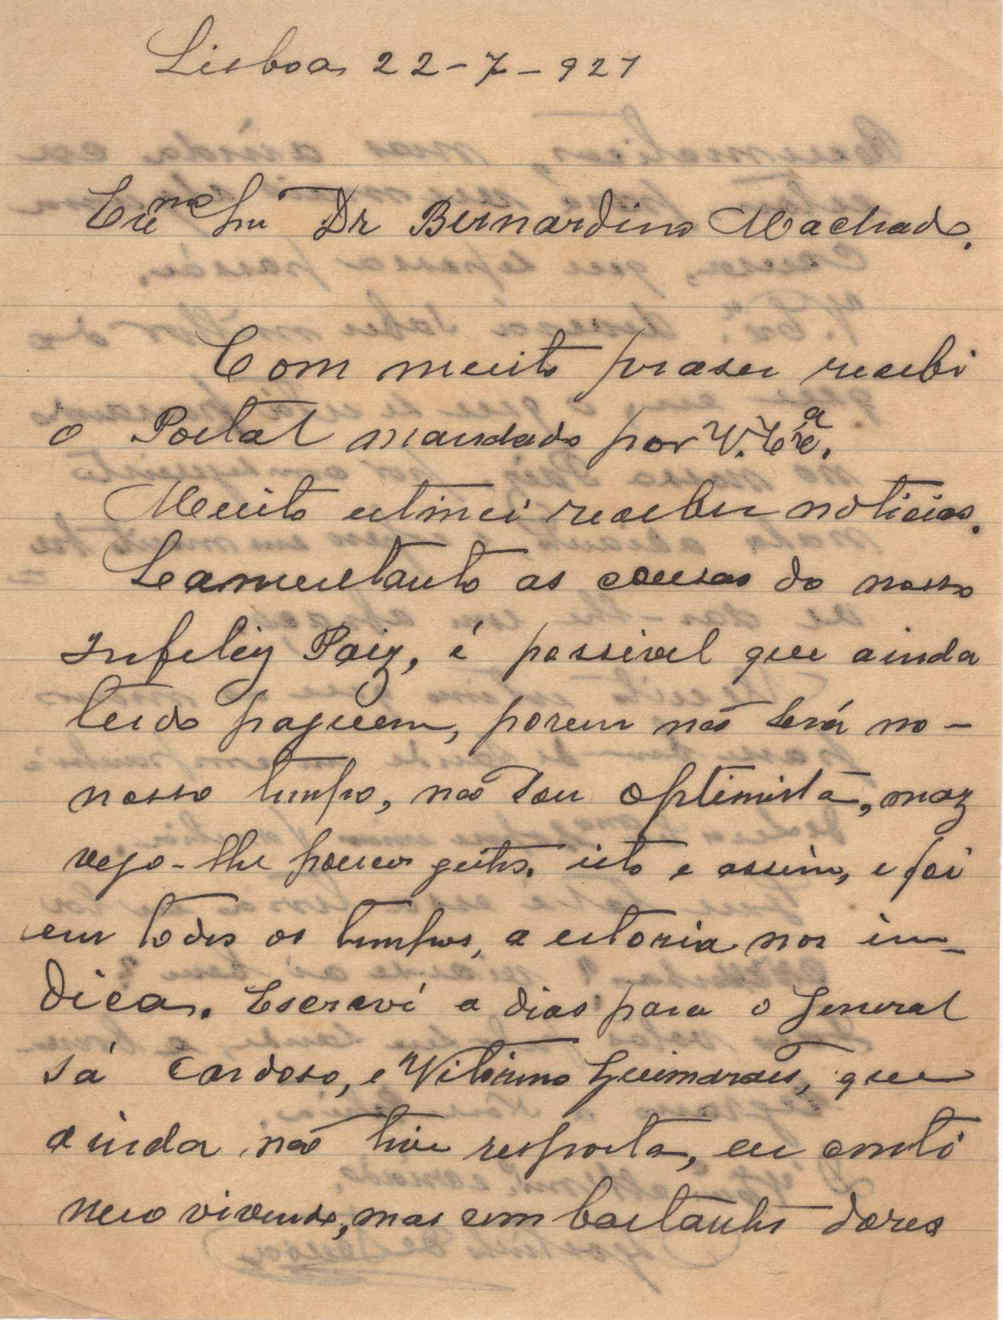 Lisboa 22-7-927
Exmo Snr Dr Bernardino Machado.
Com muito praser recebi
o Postal mandado por V. Exa.
Muito estimei receber noticias.
Lamentanto as cousas do nosso
Infeliz Paiz, é possivel que ainda
tudo paguem, porem não será no-
nosso tempo, não sou optimista, maz
vejo-lhe poucos geitos. isto e assim, e foi
em todos os tempos, a estoria nos in-
dica. Escreví a dias para o General
Sá Cardoso, e Vitorino Guimarães, que
ainda não tive resposta, eu conti
nuo vivendo, mas com bastantes dores